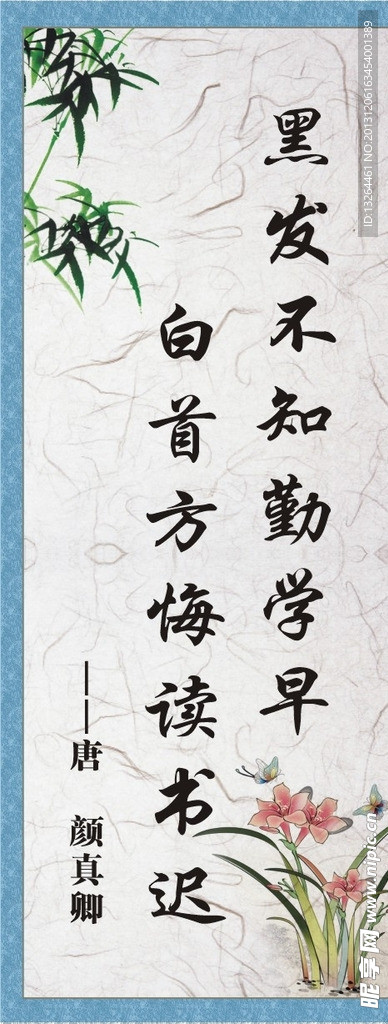 黑发不知勤学早
白首方悔读书迟
——唐 颜真卿
ID:13264461 NO:20131206163454001389
昵享网 www.nipic.cn